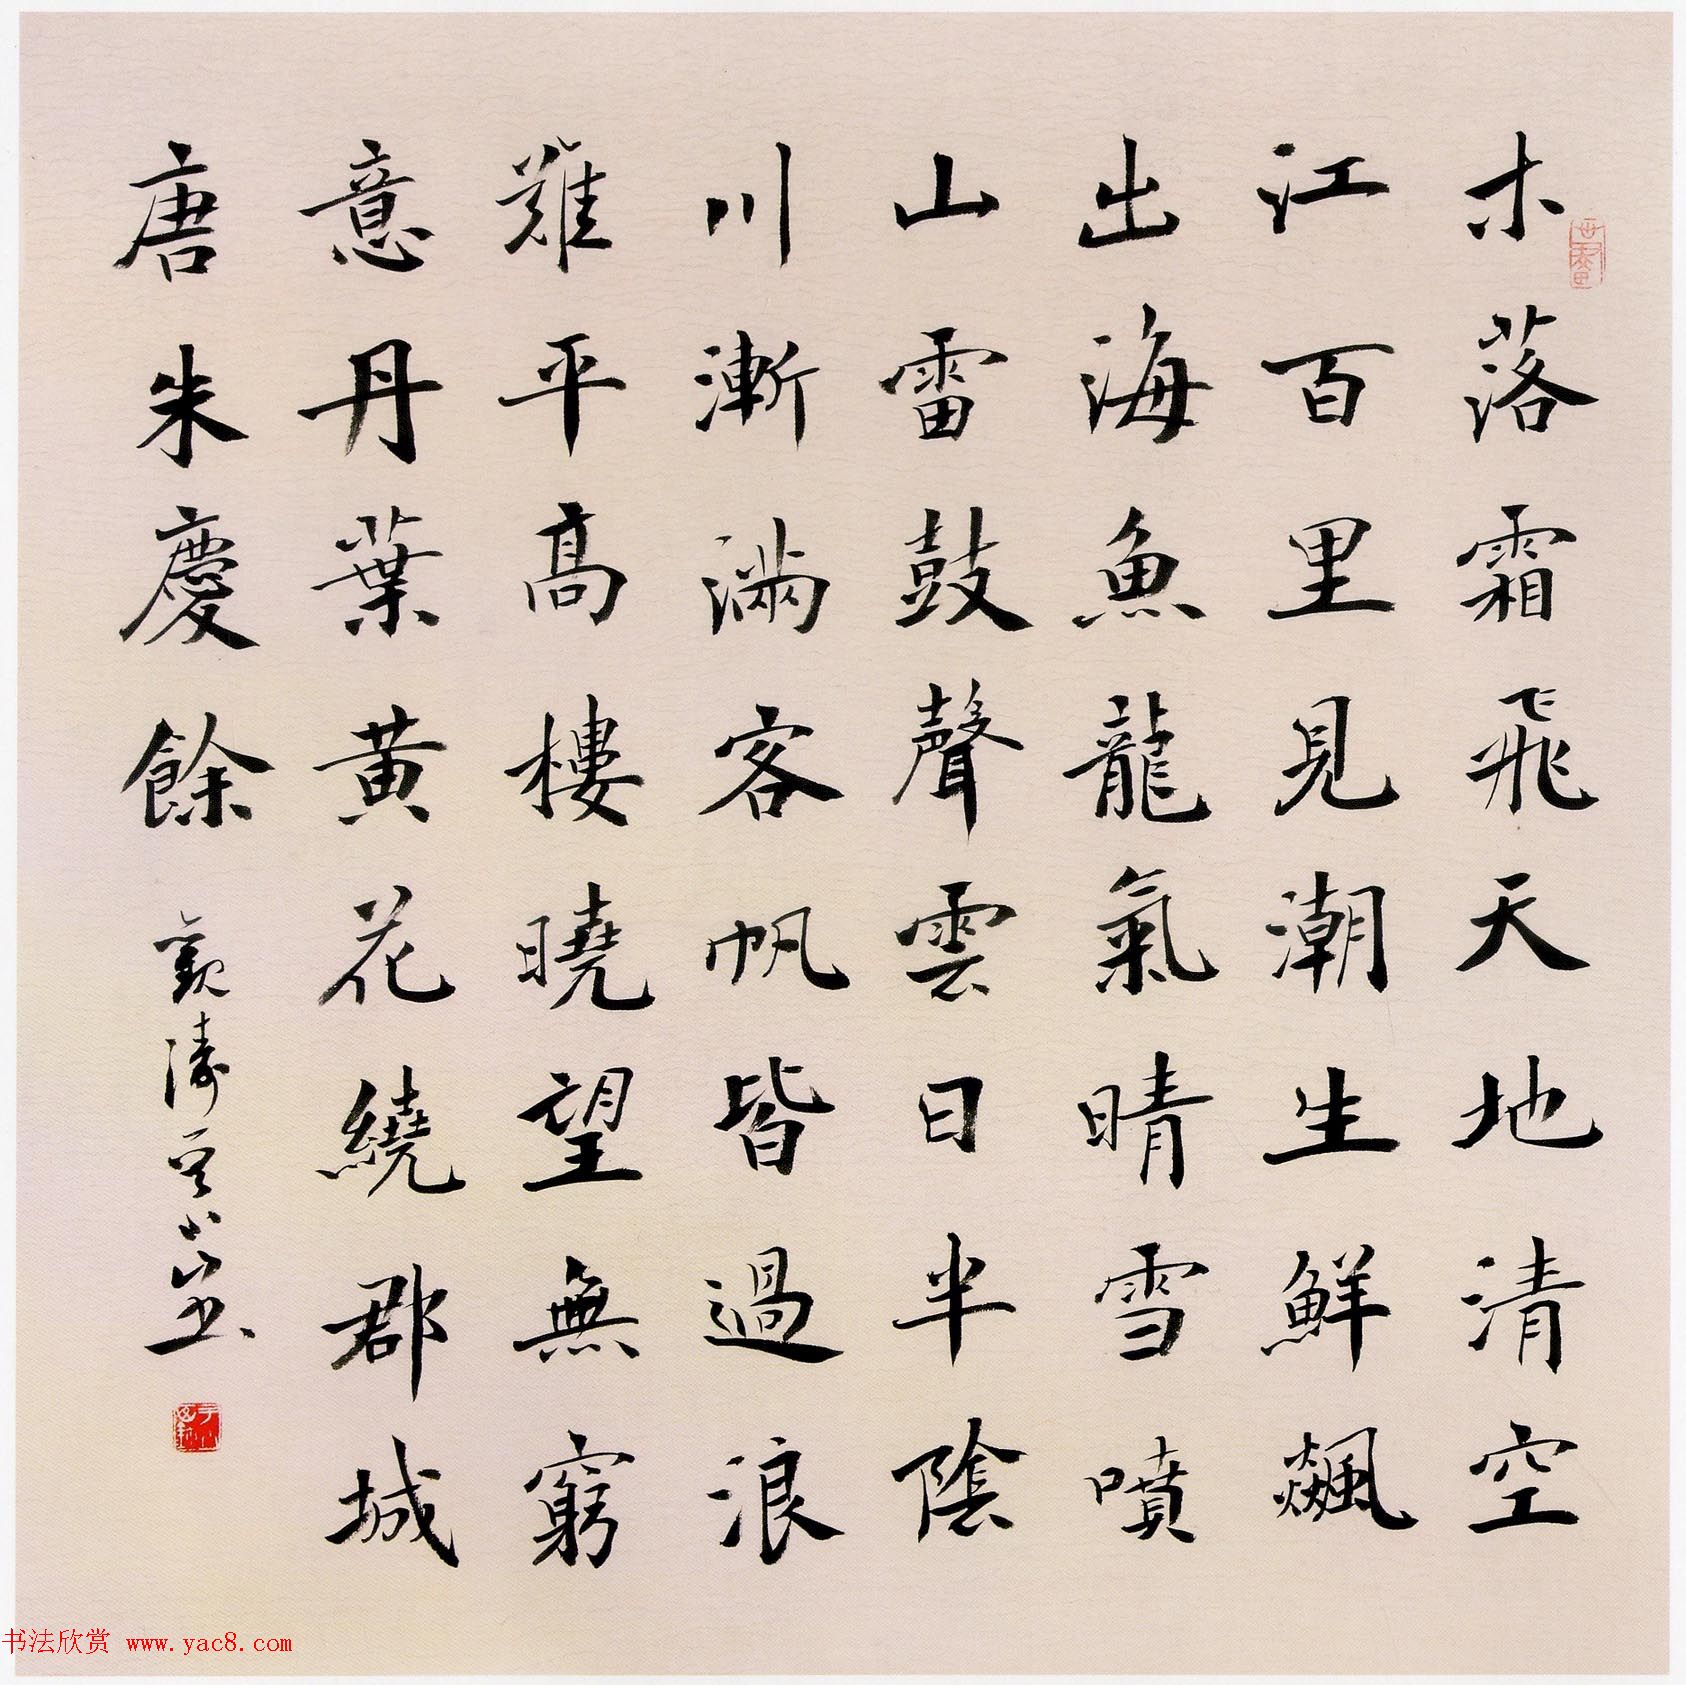 木落霜飛天地清空
江百里見潮生鮮飆
出海魚龍氣晴雪噴
山雷鼓聲雲日半陰
川漸滿客帆皆過浪
難平髙樓曉望無窮
意丹葉黄花繞郡城
唐朱慶餘 觀濤
书法欣赏 www.yac8.com